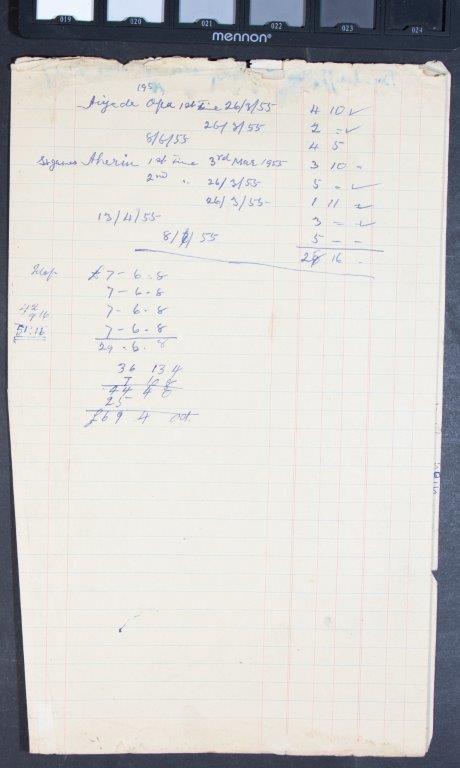 019 020 021 022 023 024
mennon®
195
Aiyede Opa 1st Due 26/3/55 4 10 ✓
26/3/55 2 = ✓
8/6/55 4 5
Aherin 1st Due 3rd Mar 1955 3 10 -
2nd " 26/3/55 5 - ✓
26/3/55- 1 11 ✓
13/4/55 3 = ✓
8/6/55 5 - -
28 16 -
£7-6-8
7-6-8
42 7-6-8
9 16
51:16 7-6-8
29-6-8
36 13 4
7 10 8
44 4 0
25
£69 4